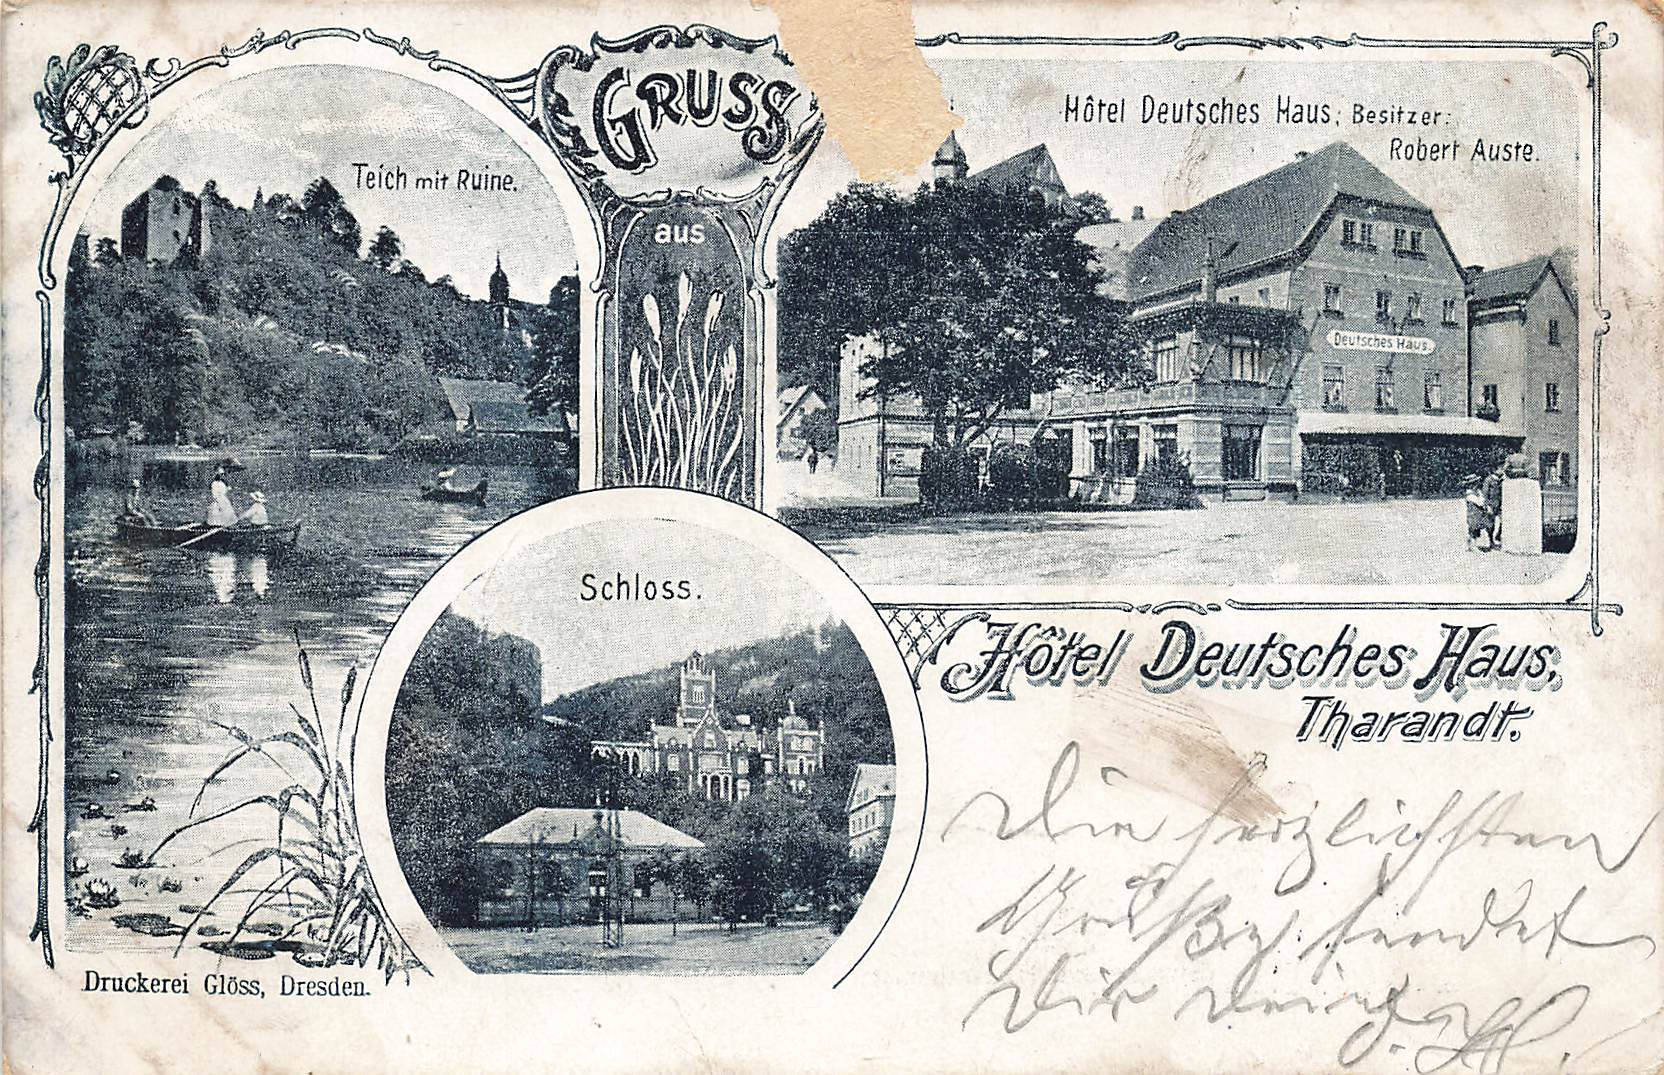 GRUSS
aus
Teich mit Ruine.
Hôtel Deutsches Haus; Besitzer:
Robert Auste.
Deutsches Haus.
Schloss.
Hôtel Deutsches Haus,
Tharandt.
Die herzlichsten
Grüße sendet
Dir
Druckerei Glöss, Dresden.